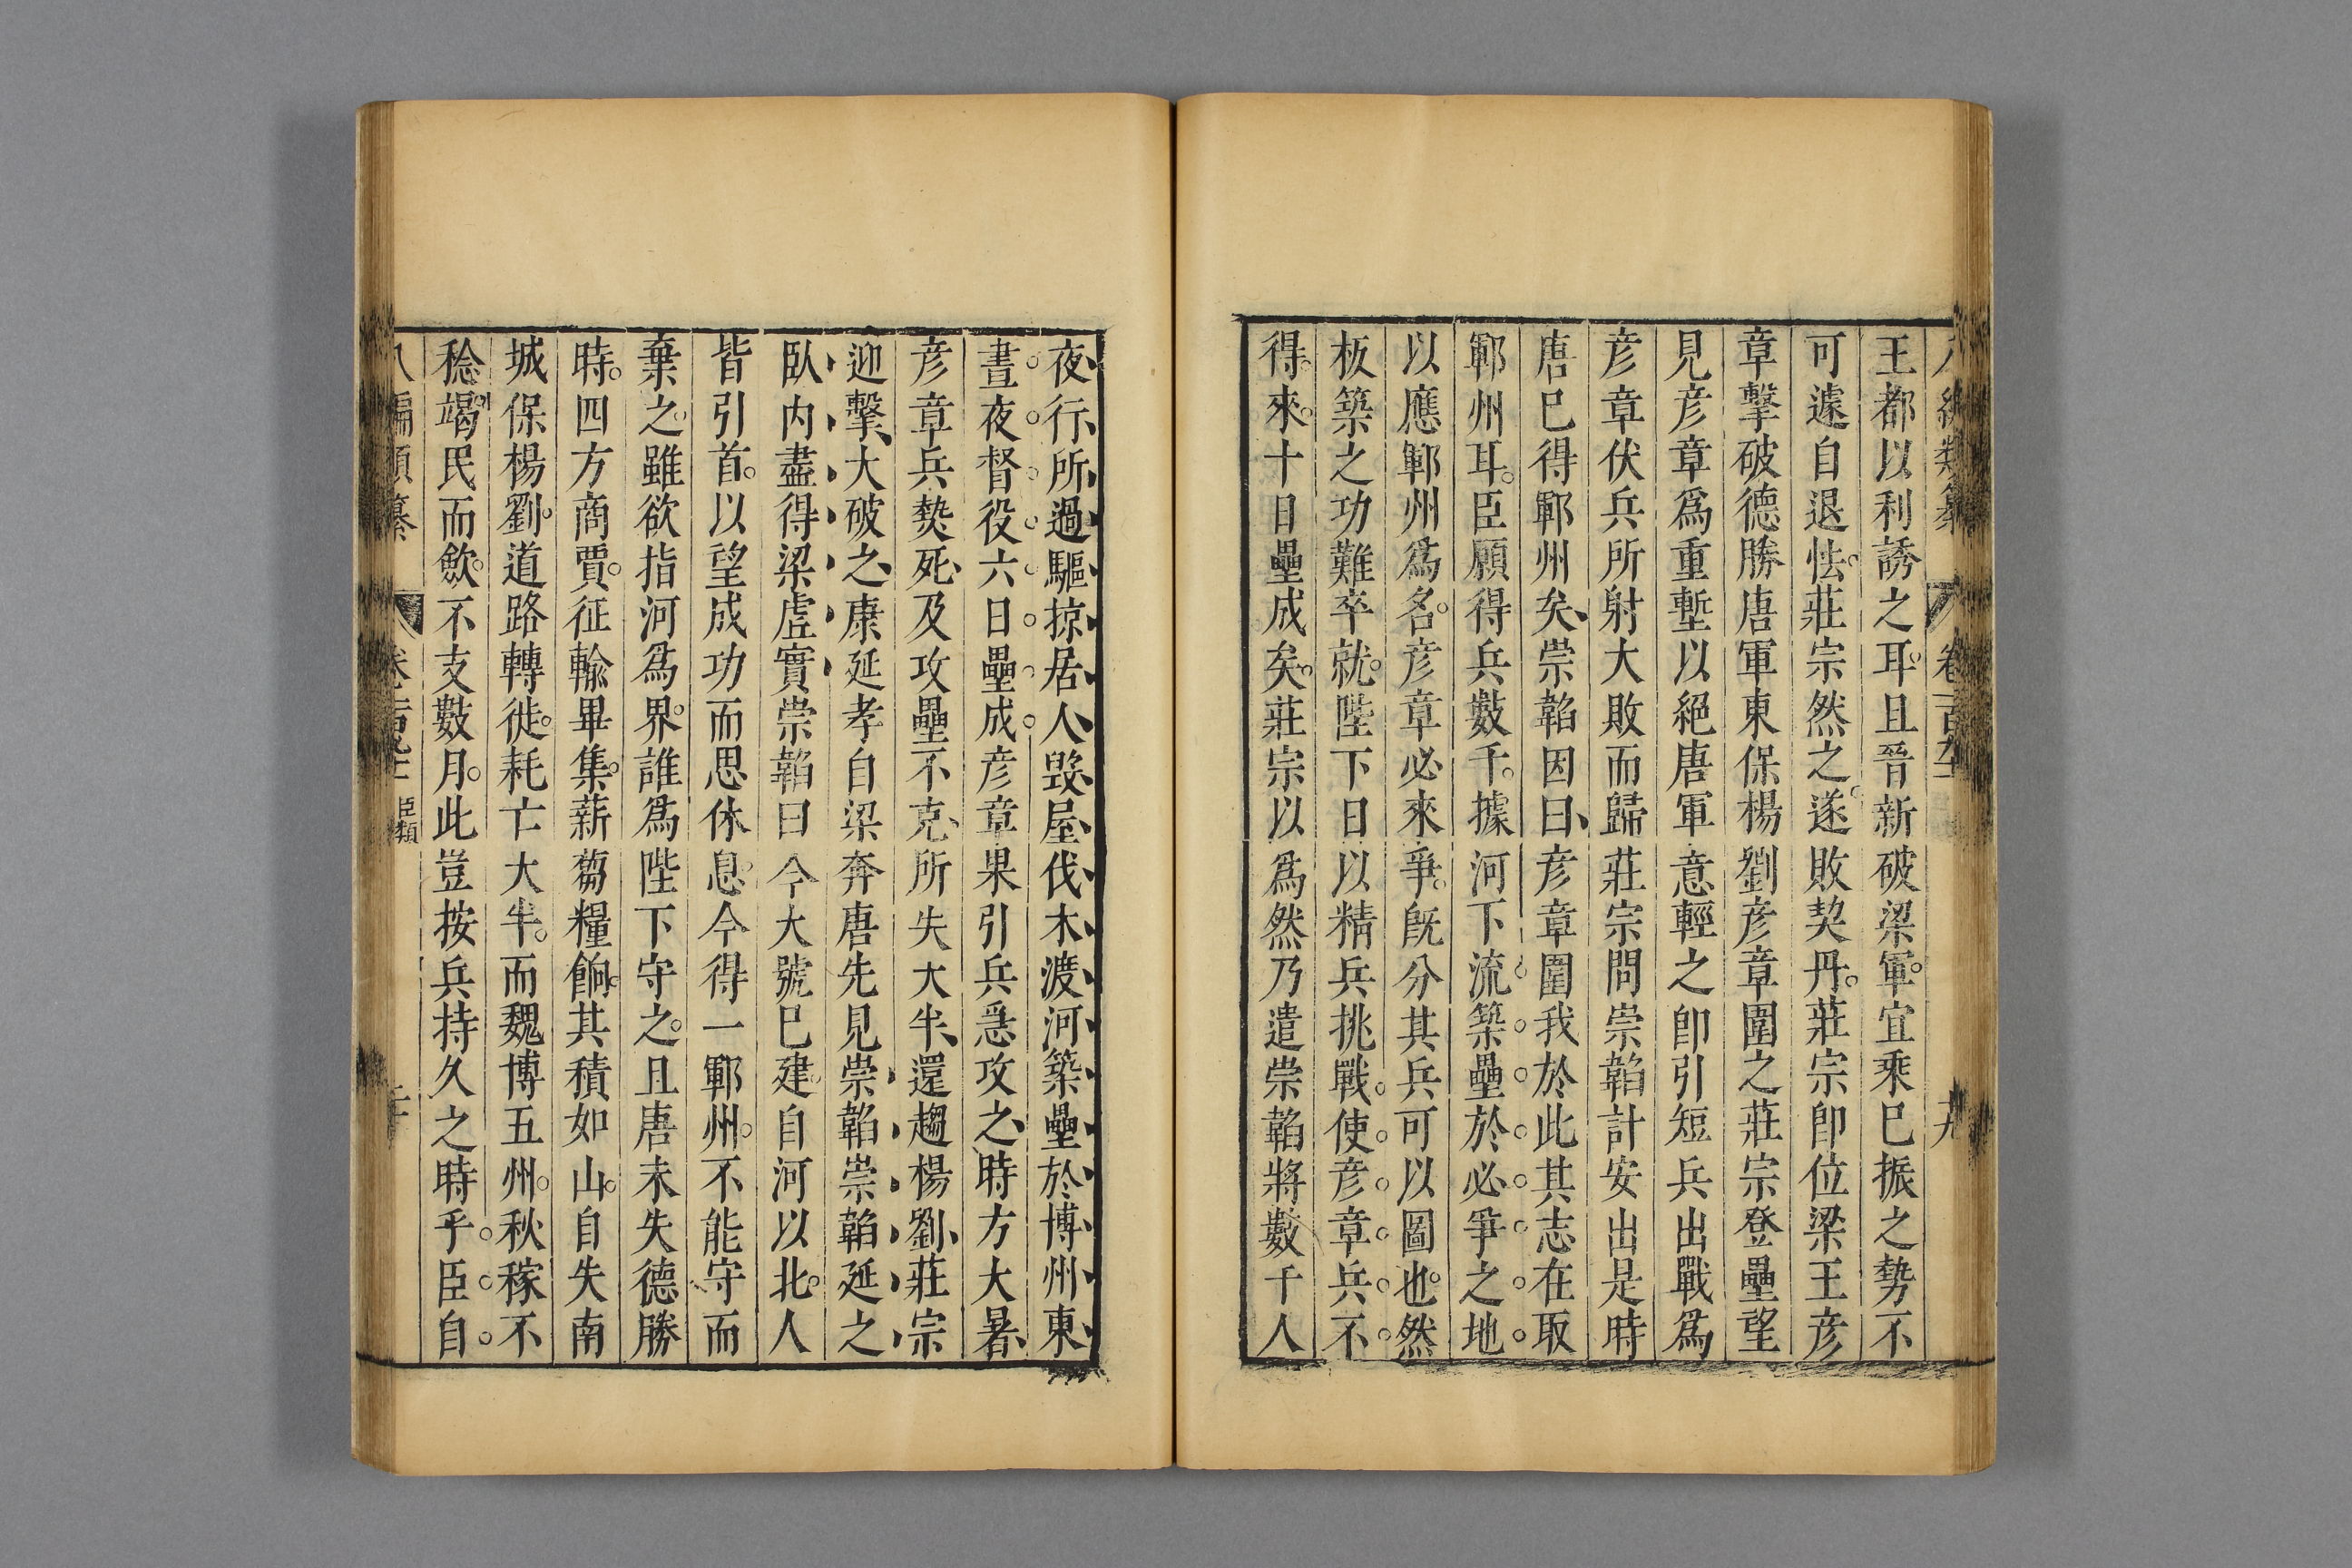 王都以利誘之耳且晉新破梁軍宜乘巳振之勢不
可遽自退怯莊宗然之遂敗契丹莊宗卽位梁王彦
章擊破德勝唐軍東保楊劉彦章圍之莊宗登壘望
見彦章爲重塹以絕唐軍意輕之卽引短兵出戰爲
彦章伏兵所射大敗而歸莊宗問崇韜計安出是時
唐巳得鄆州矣崇韜因曰彦章圍我於此其志在取
鄆州耳臣願得兵數千據河下流築壘於必爭之地
以應鄆州爲名彦章必來爭旣分其兵可以圖也然
板築之功難卒就陛下日以精兵挑戰使彦章兵不
得來十日壘成矣莊宗以爲然乃遣崇韜將數千人
夜行所過驅掠居人毀屋伐木渡河築壘於博州東
晝夜督役六日壘成彦章果引兵急攻之時方大暑
彦章兵熱死及攻壘不克所失大半還趨楊劉莊宗
迎擊大破之康延孝自梁奔唐先見崇韜崇韜延之
臥內盡得梁虛實崇韜曰今大號巳建自河以北人
皆引首以望成功而思休息今得一鄆州不能守而
棄之雖欲指河爲界誰爲陛下守之且唐未失德勝
時四方商賈征輸畢集薪蒭糧餉其積如山自失南
城保楊劉道路轉徙耗亡大半而魏博五州秋稼不
稔竭民而歛不支數月此豈按兵持久之時乎臣自
臣類